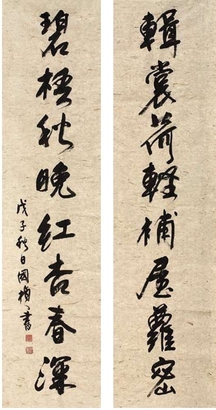 輯裳荷輕補屋蘿密
碧梧秋晚紅杏春深
戊子秋日國梅書